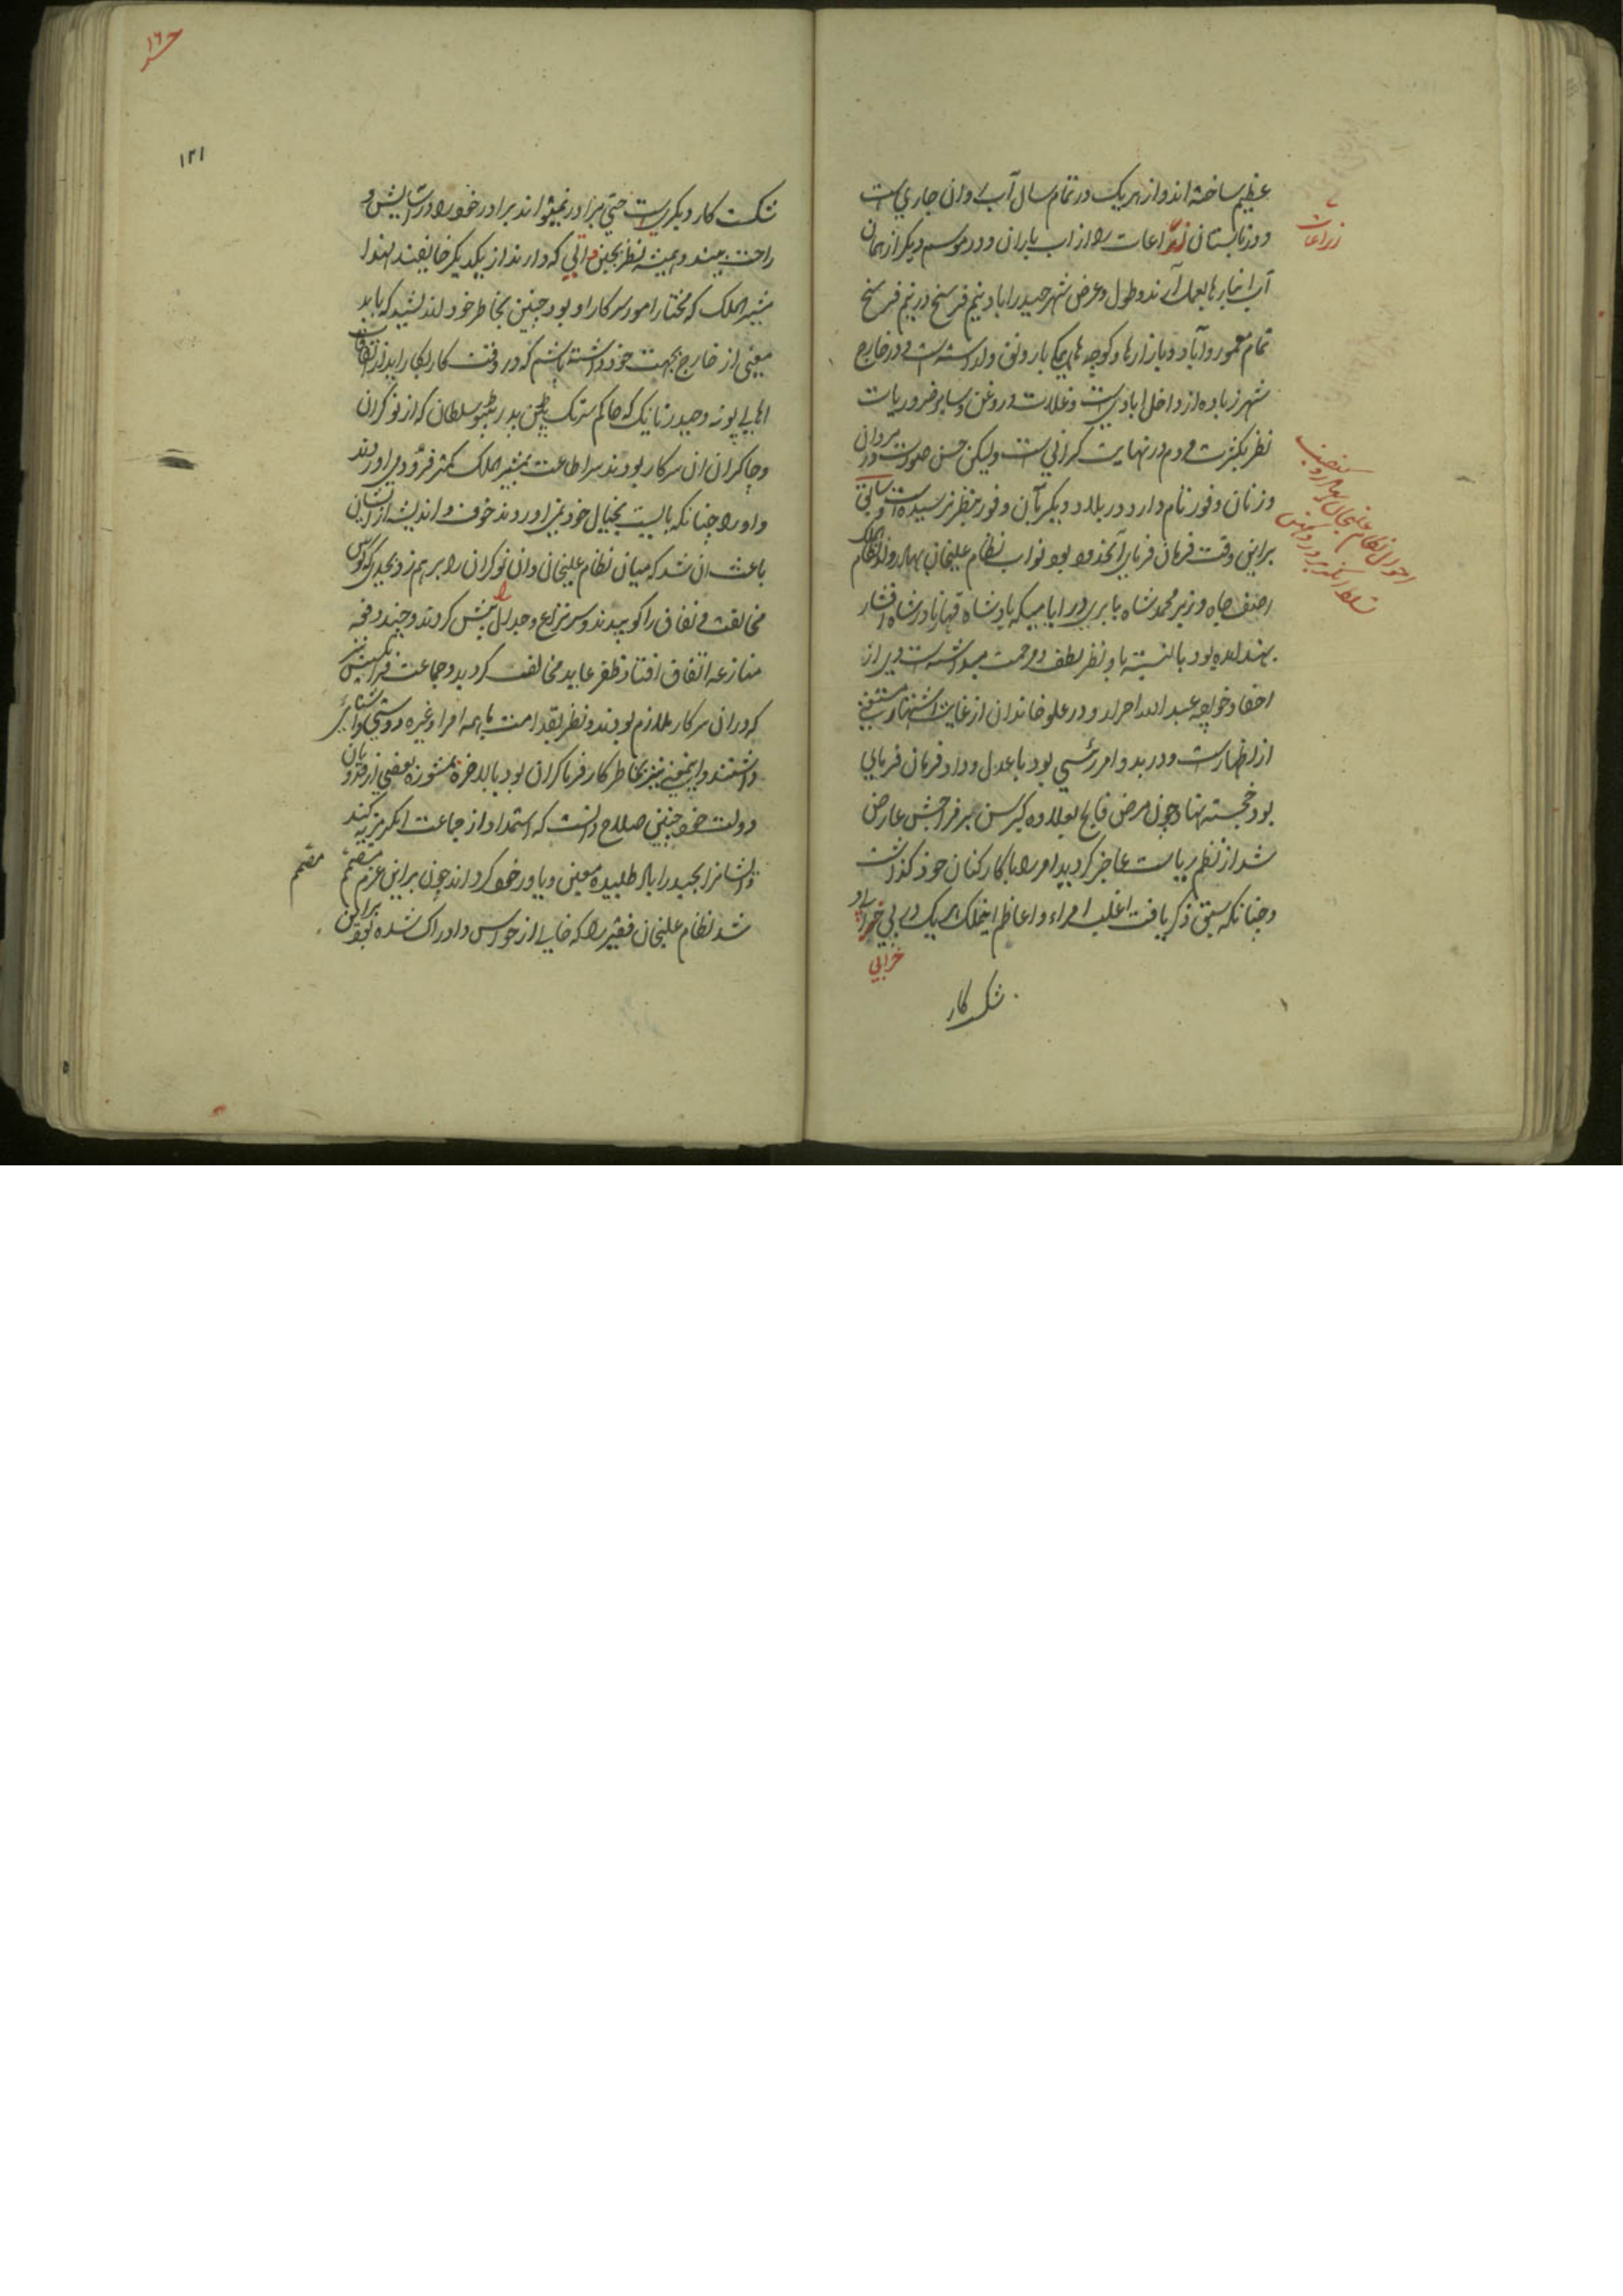 عظیم ساخته اند و از هر یک در تمام سال آب روان جاری است
و در تابستان زراعات را از اب باران و در موسم دیگر از همان
آب انبارها بعمل آرند و طول و عرض شهر حیدراباد نیم فرسخ در نیم فرسخ
تمام معمور و آباد و بازارها و کوچه های با رونق و در خارج
شهر زیاده از داخل ابادی است و غلات و روغن و سایر ضروریات
نظر بکثرت مردم در نهایت گرانی است ولیکن حسن صورت در مردان
و زنان وفور تام دارد در بلاد دیگر بآن وفور بنظر نرسیده است
در این وقت فرمان فرمای آنحدود بود نواب نظام علیخان بهادر ولد نظام الملک
اصف جاه وزیر محمد شاه بابری در ایامیکه پادشاه قهار نادر شاه افشار
بهند امده بود بالنسبه باو نظر لطف و رحمت میداشته است وی از
احفاد خواجه عبدالله احرار و در علو خاندان از غایت اشتهار مستغنی
از اظهار است و در بدو امر رئیسی بود با عدل و داد فرمان فرمایی
بود خجسته نهاد چون مرض فالج بعلاوه کبر سن بر مزاجش عارض
شد از نظم ریاست عاجز گردید امر را با کارکنان خود گذاشت
و چنانکه سبق ذکر یافت اغلب امراء و اعاظم اینملک هر یک در پی خرابی و
خرابی
شکست کار
زراعات
احوال نظام علیخان بهادر و
۱۶
۱۲۱
شکست کار دیگری است حتی برادر نمیتواند برادر خود را در آسایش و
راحت بیند و همیشه نظر بچنین که دارند از یکدیگر خایفند لهذا
مشیرالملک که مختار امور سرکار او بود چنین بخاطر خود اندیشید که باید
معینی از خارج بجهت خود داشته باشم که در وقت کار بکار اید از اتفاقات
اهالی پونه و حیدر نایک که حاکم سرنک پتن پدر تیپو سلطان که از نوکران
و چاکران ان سرکار بودند سر اطاعت بمشیرالملک کمتر فرود می اوردند
و او را چنانکه بایست بخیال خود نمی اوردند خوف و اندیشه از ایشان
باعث ان شد که میان نظام علیخان و ان نوکران را بر هم زد بحدی که کوس
مخالفت و نفاق را کوبیدند و سر نزاع و جدال را پیش کردند و چند دفعه
منازعه اتفاق افتاد ظفر عاید مخالفت گردید و جماعت فرانسیس نیز
که در ان سرکار ملازم بودند و نظر بقدامت با همه امرا و غیره دوستی و اشنائی
داشتند و اینمعنی نیز بخاطر کار فرما گران بود بالاخره بمشوره بعضی از
دولت خود چنین صلاح دانست که استمداد از جماعت انگریزیه کند
و ایشانرا بحیدراباد طلبیده معین و یاور خود گرداند چون بر این عزم مصمم
مصمم
شد نظام علیخان فقیر را که خالی از حواس و ادراک شده بود بر این